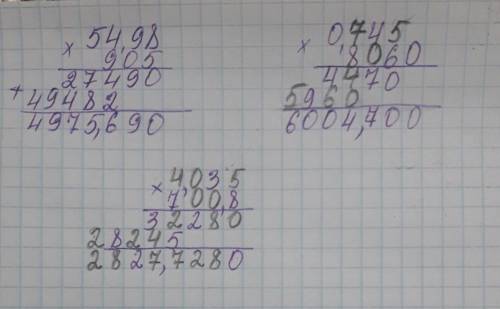 × 54,98
905
27490
+ 49482
4975,690
× 0,745
8060
4470
5960
6004,700
× 4,035
700,8
32280
28245
2827,7280